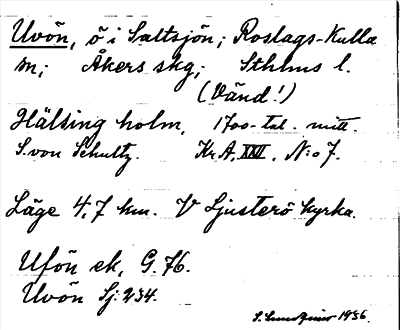 Uvön, ö i Saltsjön; Roslags-Kulla
sn; Åkers skg; Sthlms l.
(Vänd!)
Hälsing holm, 1700-tal. mitt.
S. von Schultz. Kr.A. XXVI, N:o 7.
Läge 4,7 km. V Ljusterö kyrka.
Ufön ek, G. 76.
Uvön Sj: 234.
1936.